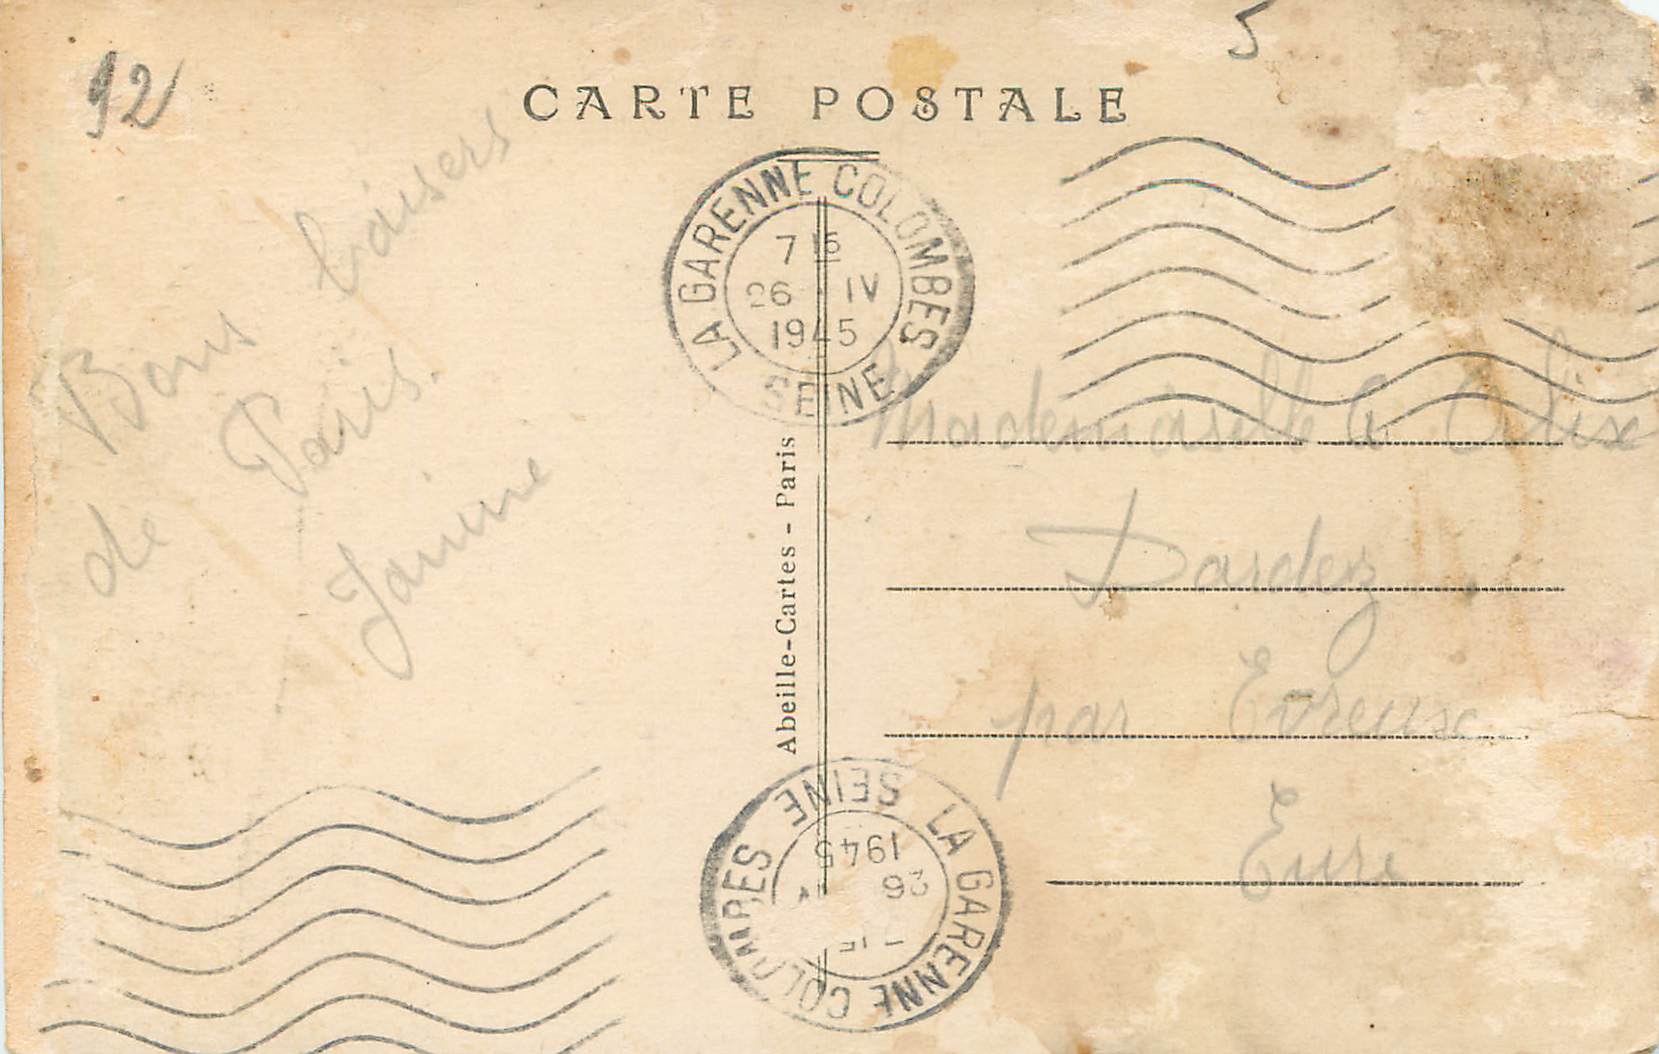 5
92
CARTE POSTALE
Bons baisers
de Paris.
Janine
LA GARENNE COLOMBES
7 15
26 IV
1945
SEINE
Abeille-Cartes - Paris
Mademoiselle A Alix
Dardez
par Evreux
Eure
LA GARENNE COLOMBES
SEINE
1945
26